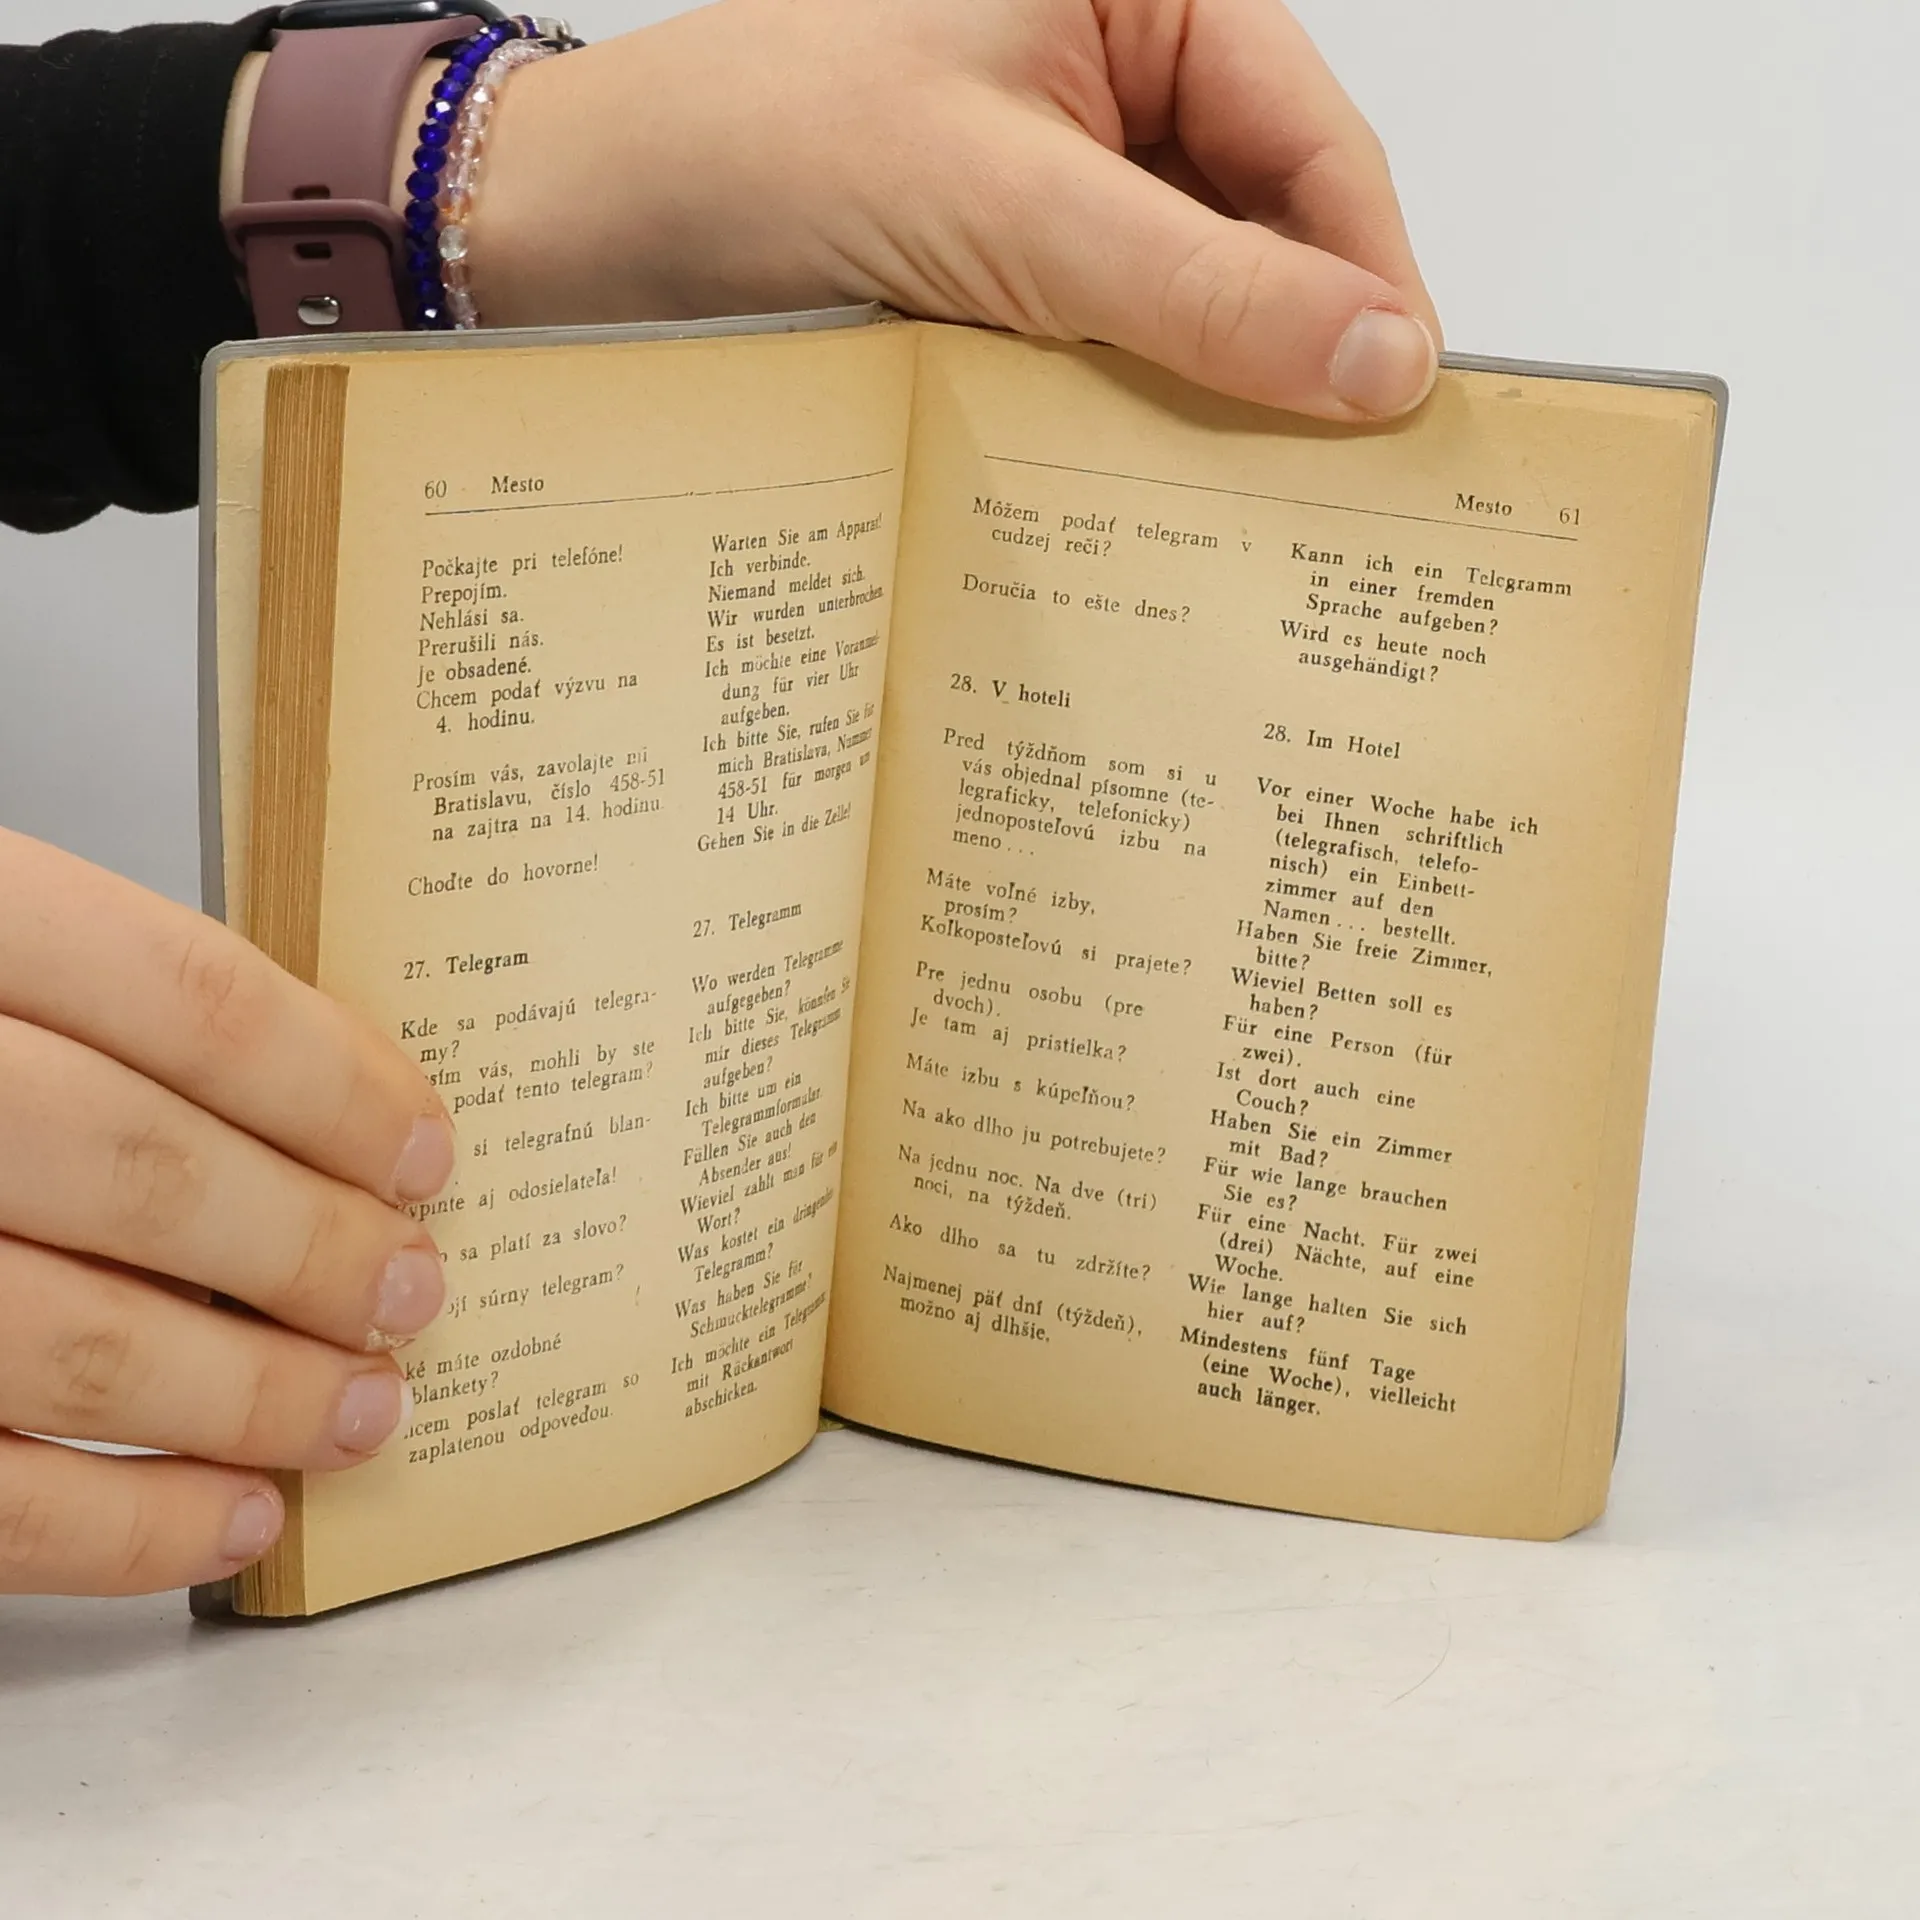 60 Mesto
Počkajte pri telefóne!
Prepojím.
Nehlási sa.
Prerušili nás.
Je obsadené.
Chcem podať výzvu na
4. hodinu.
Prosím vás, zavolajte mi
Bratislavu, číslo 458-51
na zajtra na 14. hodinu.
Choďte do hovorne!
27. Telegram
Kde sa podávajú telegra-
my?
vás, mohli by ste
podať tento telegram?
si telegrafnú blan-
aj odosielateľa!
sa platí za slovo?
súrny telegram?
máte ozdobné
blankety?
poslať telegram so
zaplatenou odpoveďou.
Warten Sie am Apparat!
Ich verbinde.
Niemand meldet sich.
Wir wurden unterbrochen
Es ist besetzt.
Ich möchte eine Voranmel-
dung für vier Uhr
aufgeben.
Ich bitte Sie, rufen Sie für
mich Bratislava, Nummer
458-51 für morgen um
14 Uhr.
Gehen Sie in die Zelle!
27. Telegramm
Wo werden Telegramme
aufgegeben?
Ich bitte Sie, könnten Sie
mir dieses Telegramm
aufgeben?
Ich bitte um ein
Telegrammformular.
Füllen Sie auch den
Absender aus!
Wieviel zahlt man für ein
Wort?
Was kostet ein dringendes
Telegramm?
Was haben Sie für
Schmucktelegramme?
Ich möchte ein Telegramm
mit Rückantwort
abschicken.
Mesto 61
Môžem podať telegram v
cudzej reči?
Doručia to ešte dnes?
28. V hoteli
Pred týždňom som si u
vás objednal písomne (te-
legraficky, telefonicky)
jednoposteľovú izbu na
meno...
Máte voľné izby,
prosím?
Koľkoposteľovú si prajete?
Pre jednu osobu (pre
dvoch).
Je tam aj pristielka?
Máte izbu s kúpeľňou?
Na ako dlho ju potrebujete?
Na jednu noc. Na dve (tri)
noci, na týždeň.
Ako dlho sa tu zdržíte?
Najmenej päť dní (týždeň),
možno aj dlhšie.
Kann ich ein Telegramm
in einer fremden
Sprache aufgeben?
Wird es heute noch
ausgehändigt?
28. Im Hotel
Vor einer Woche habe ich
bei Ihnen schriftlich
(telegrafisch, telefo-
nisch) ein Einbett-
zimmer auf den
Namen... bestellt.
Haben Sie freie Zimmer,
bitte?
Wieviel Betten soll es
haben?
Für eine Person (für
zwei).
Ist dort auch eine
Couch?
Haben Sie ein Zimmer
mit Bad?
Für wie lange brauchen
Sie es?
Für eine Nacht. Für zwei
(drei) Nächte, auf eine
Woche.
Wie lange halten Sie sich
hier auf?
Mindestens fünf Tage
(eine Woche), vielleicht
auch länger.